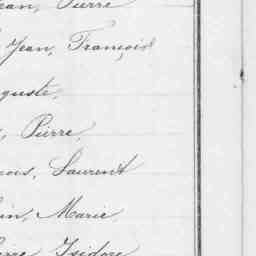 ean, Pierre
Jean, François
guste,
, Pierre,
çois, Laurent
in, Marie,
erre, Isidore